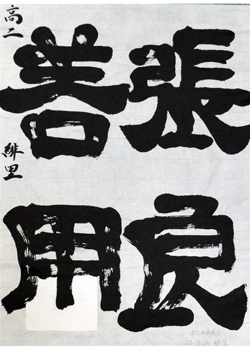 張良
善用
高二 緋里